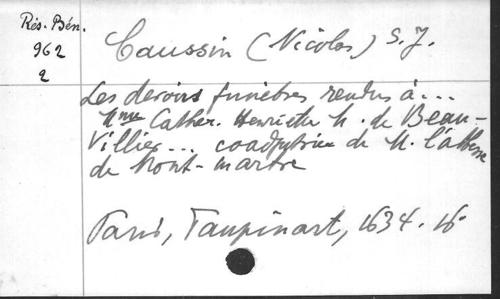 Rés. Bén.
962
2
Caussin (Nicolas) S.J.
Les devoirs funèbres rendus à...
Mme Cather. Henriette M. de Beau-
villier... coadjutrice de M. l'abbesse
de Mont-martre
Paris, Taupinart, 1634. 16°